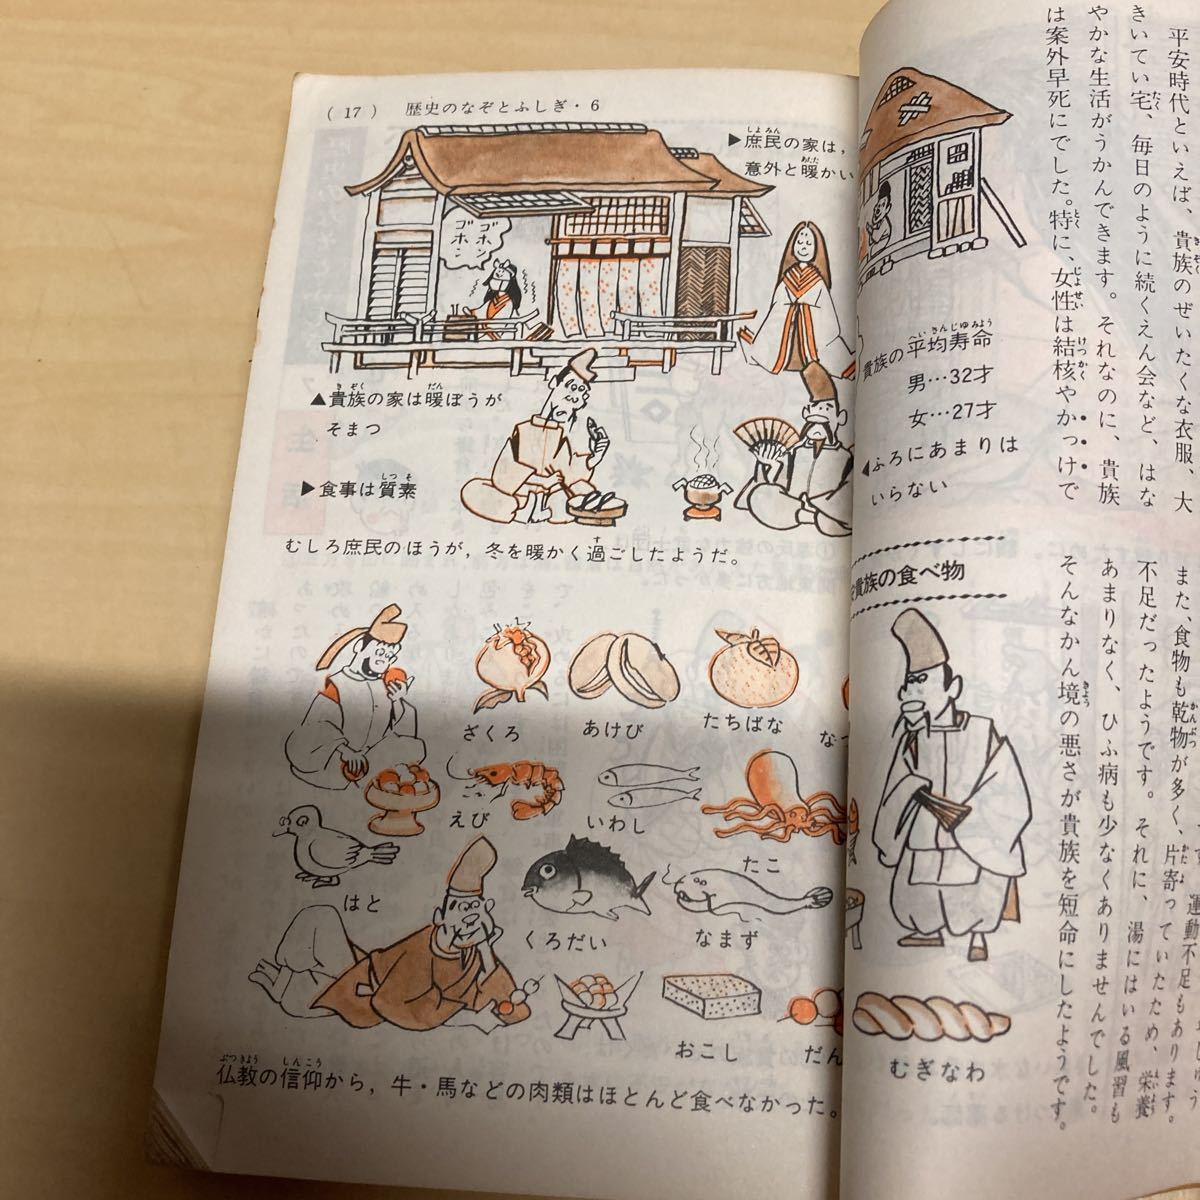 (17) 歴史のなぞとふしぎ・6
▶庶民の家は,
意外と暖かい
ゴホン
ゴホン
▲貴族の家は暖ぼうが
そまつ
▶食事は質素
むしろ庶民のほうが,冬を暖かく過ごしたようだ。
貴族の平均寿命
男…32才
女…27才
◀ふろにあまりは
いらない
貴族の食べ物
ざくろ
あけび
たちばな
なつ
えび
いわし
たこ
はと
くろだい
なまず
おこし
だん
むぎなわ
仏教の信仰から,牛・馬などの肉類はほとんど食べなかった。
平安時代といえば、貴族のぜいたくな衣服、大
きいてい宅、毎日のように続くえん会など、はな
やかな生活がうかんできます。それなのに、貴族
は案外早死にでした。特に、女性は結核やかっけで
また、食物も乾物が多く、片寄っていたため、栄養
不足だったようです。それに、湯にはいる風習も
あまりなく、ひふ病も少なくありませんでした。
そんなかん境の悪さが貴族を短命にしたようです。
運動不足もあります。